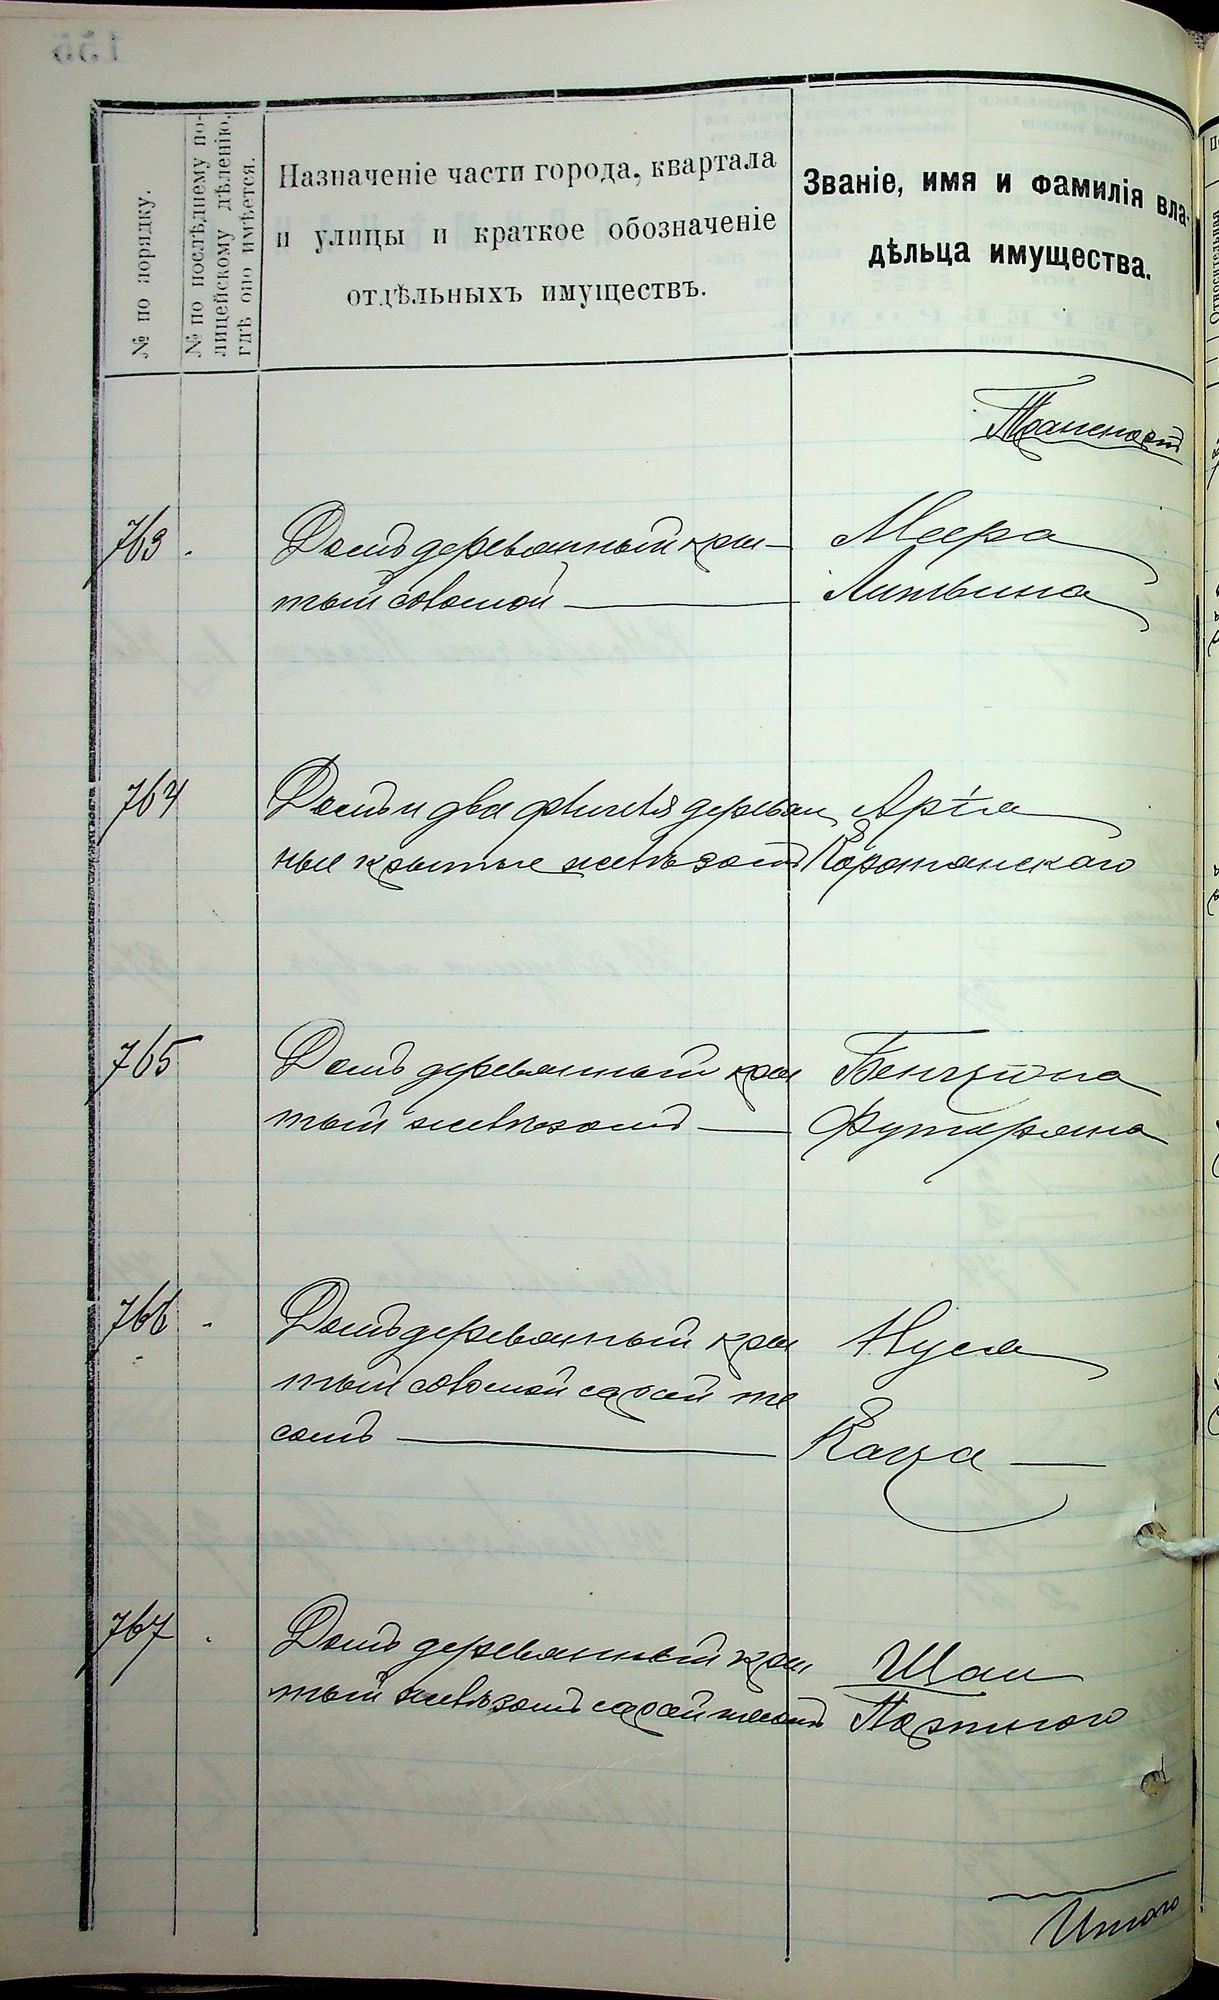 № по порядку.
№ по послѣднему по-
лицейскому дѣленію,
гдѣ оно имѣется.
Назначеніе части города, квартала
и улицы и краткое обозначеніе
отдѣльныхъ имуществъ.
Званіе, имя и фамилія вла-
дѣльца имущества.
Транспортъ
763
Домъ деревянный кры-
тый соломой
Меера
Литвина
764
Домъ и два флигеля деревян
ные крытые желѣзомъ
Арія
Коростанскаго
765
Домъ деревянный кры
тый желѣзомъ
Бенціона
Футеряна
766
Домъ деревянный кры
тый соломой сарай те
сомъ
Нуся
Каца
767
Домъ деревянный кры
тый желѣзомъ сарай тесомъ
Шаи
Портного
Итого